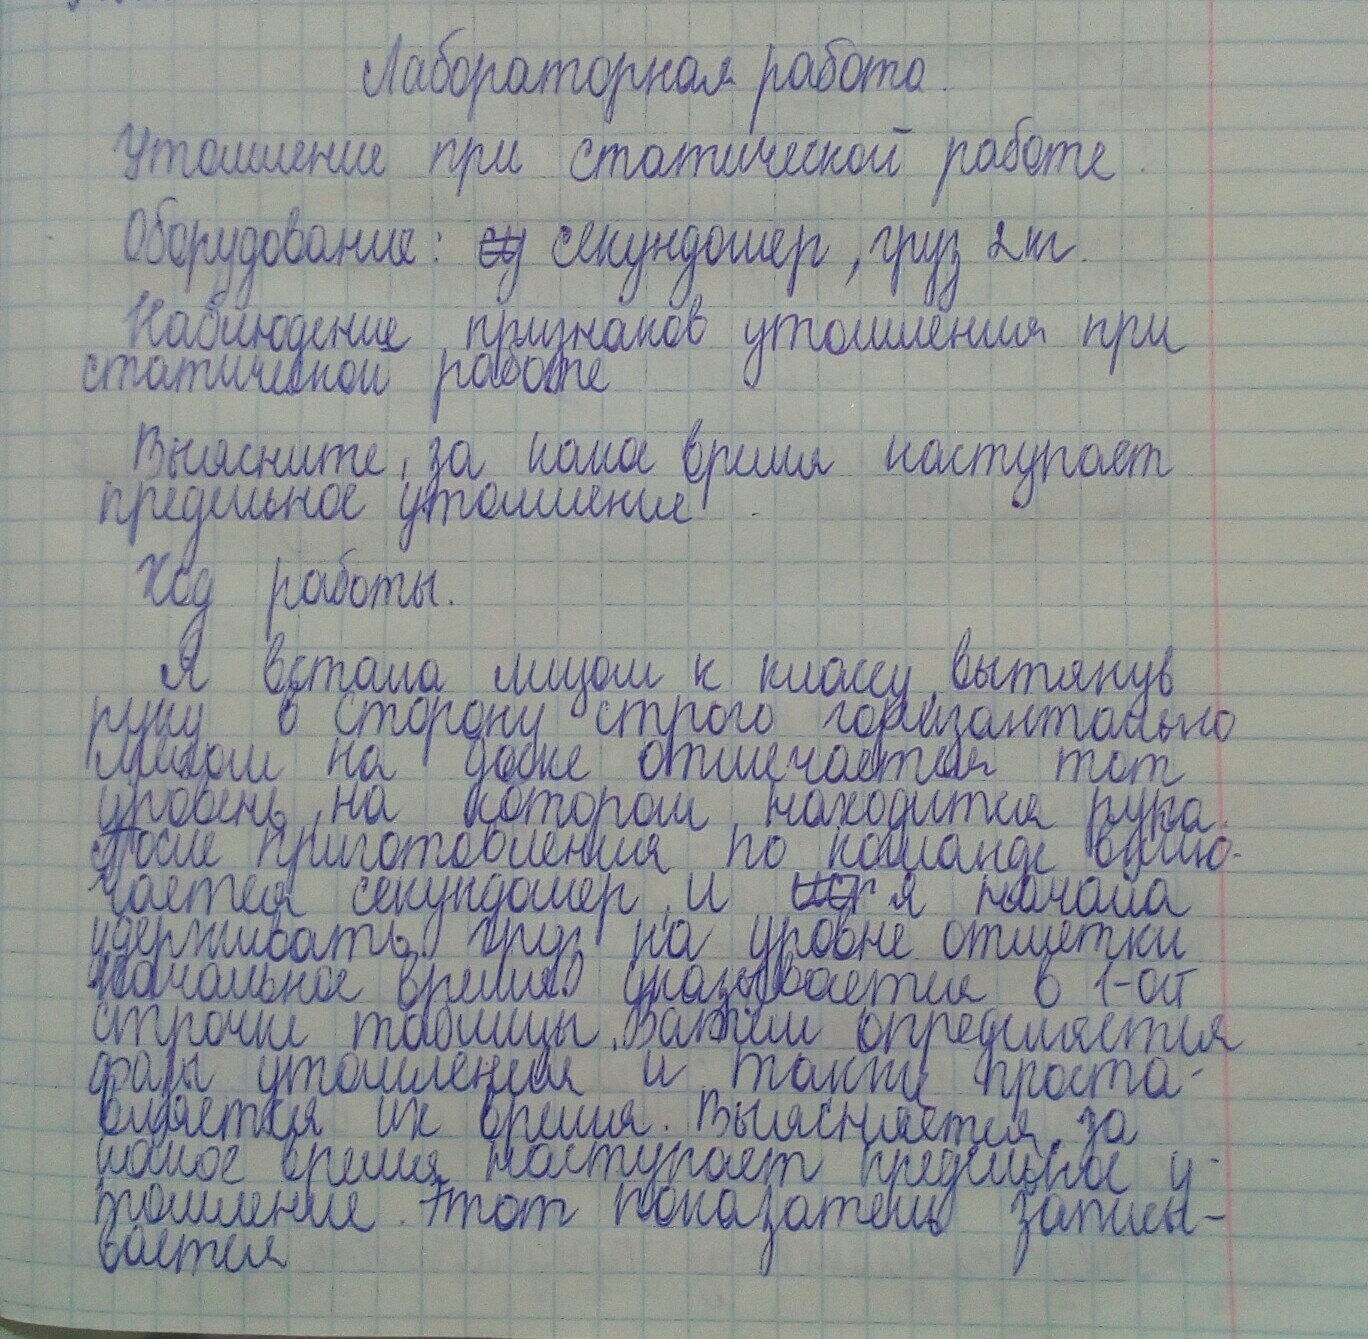 Лабораторная работа.
Утомление при статической работе.
Оборудование: секундомер, груз 2 кг.
Наблюдение признаков утомления при
статической работе
Выясните, за какое время наступает
предельное утомление.
Ход работы.
Я встала лицом к классу, вытянув
руку в сторону строго горизантально
Мелом на доске отмечается тот
уровень, на котором находится рука.
После приготовления по команде вклю-
чается секундомер, и я начала
удерживать груз на уровне отметки
Начальное время указывается в 1-ой
строчке таблицы. Затем определяется
фазы утомления и также проста-
вляется их время. Выясняется, за
какое время наступает предельное у-
томление. Этот показатель записы-
вается